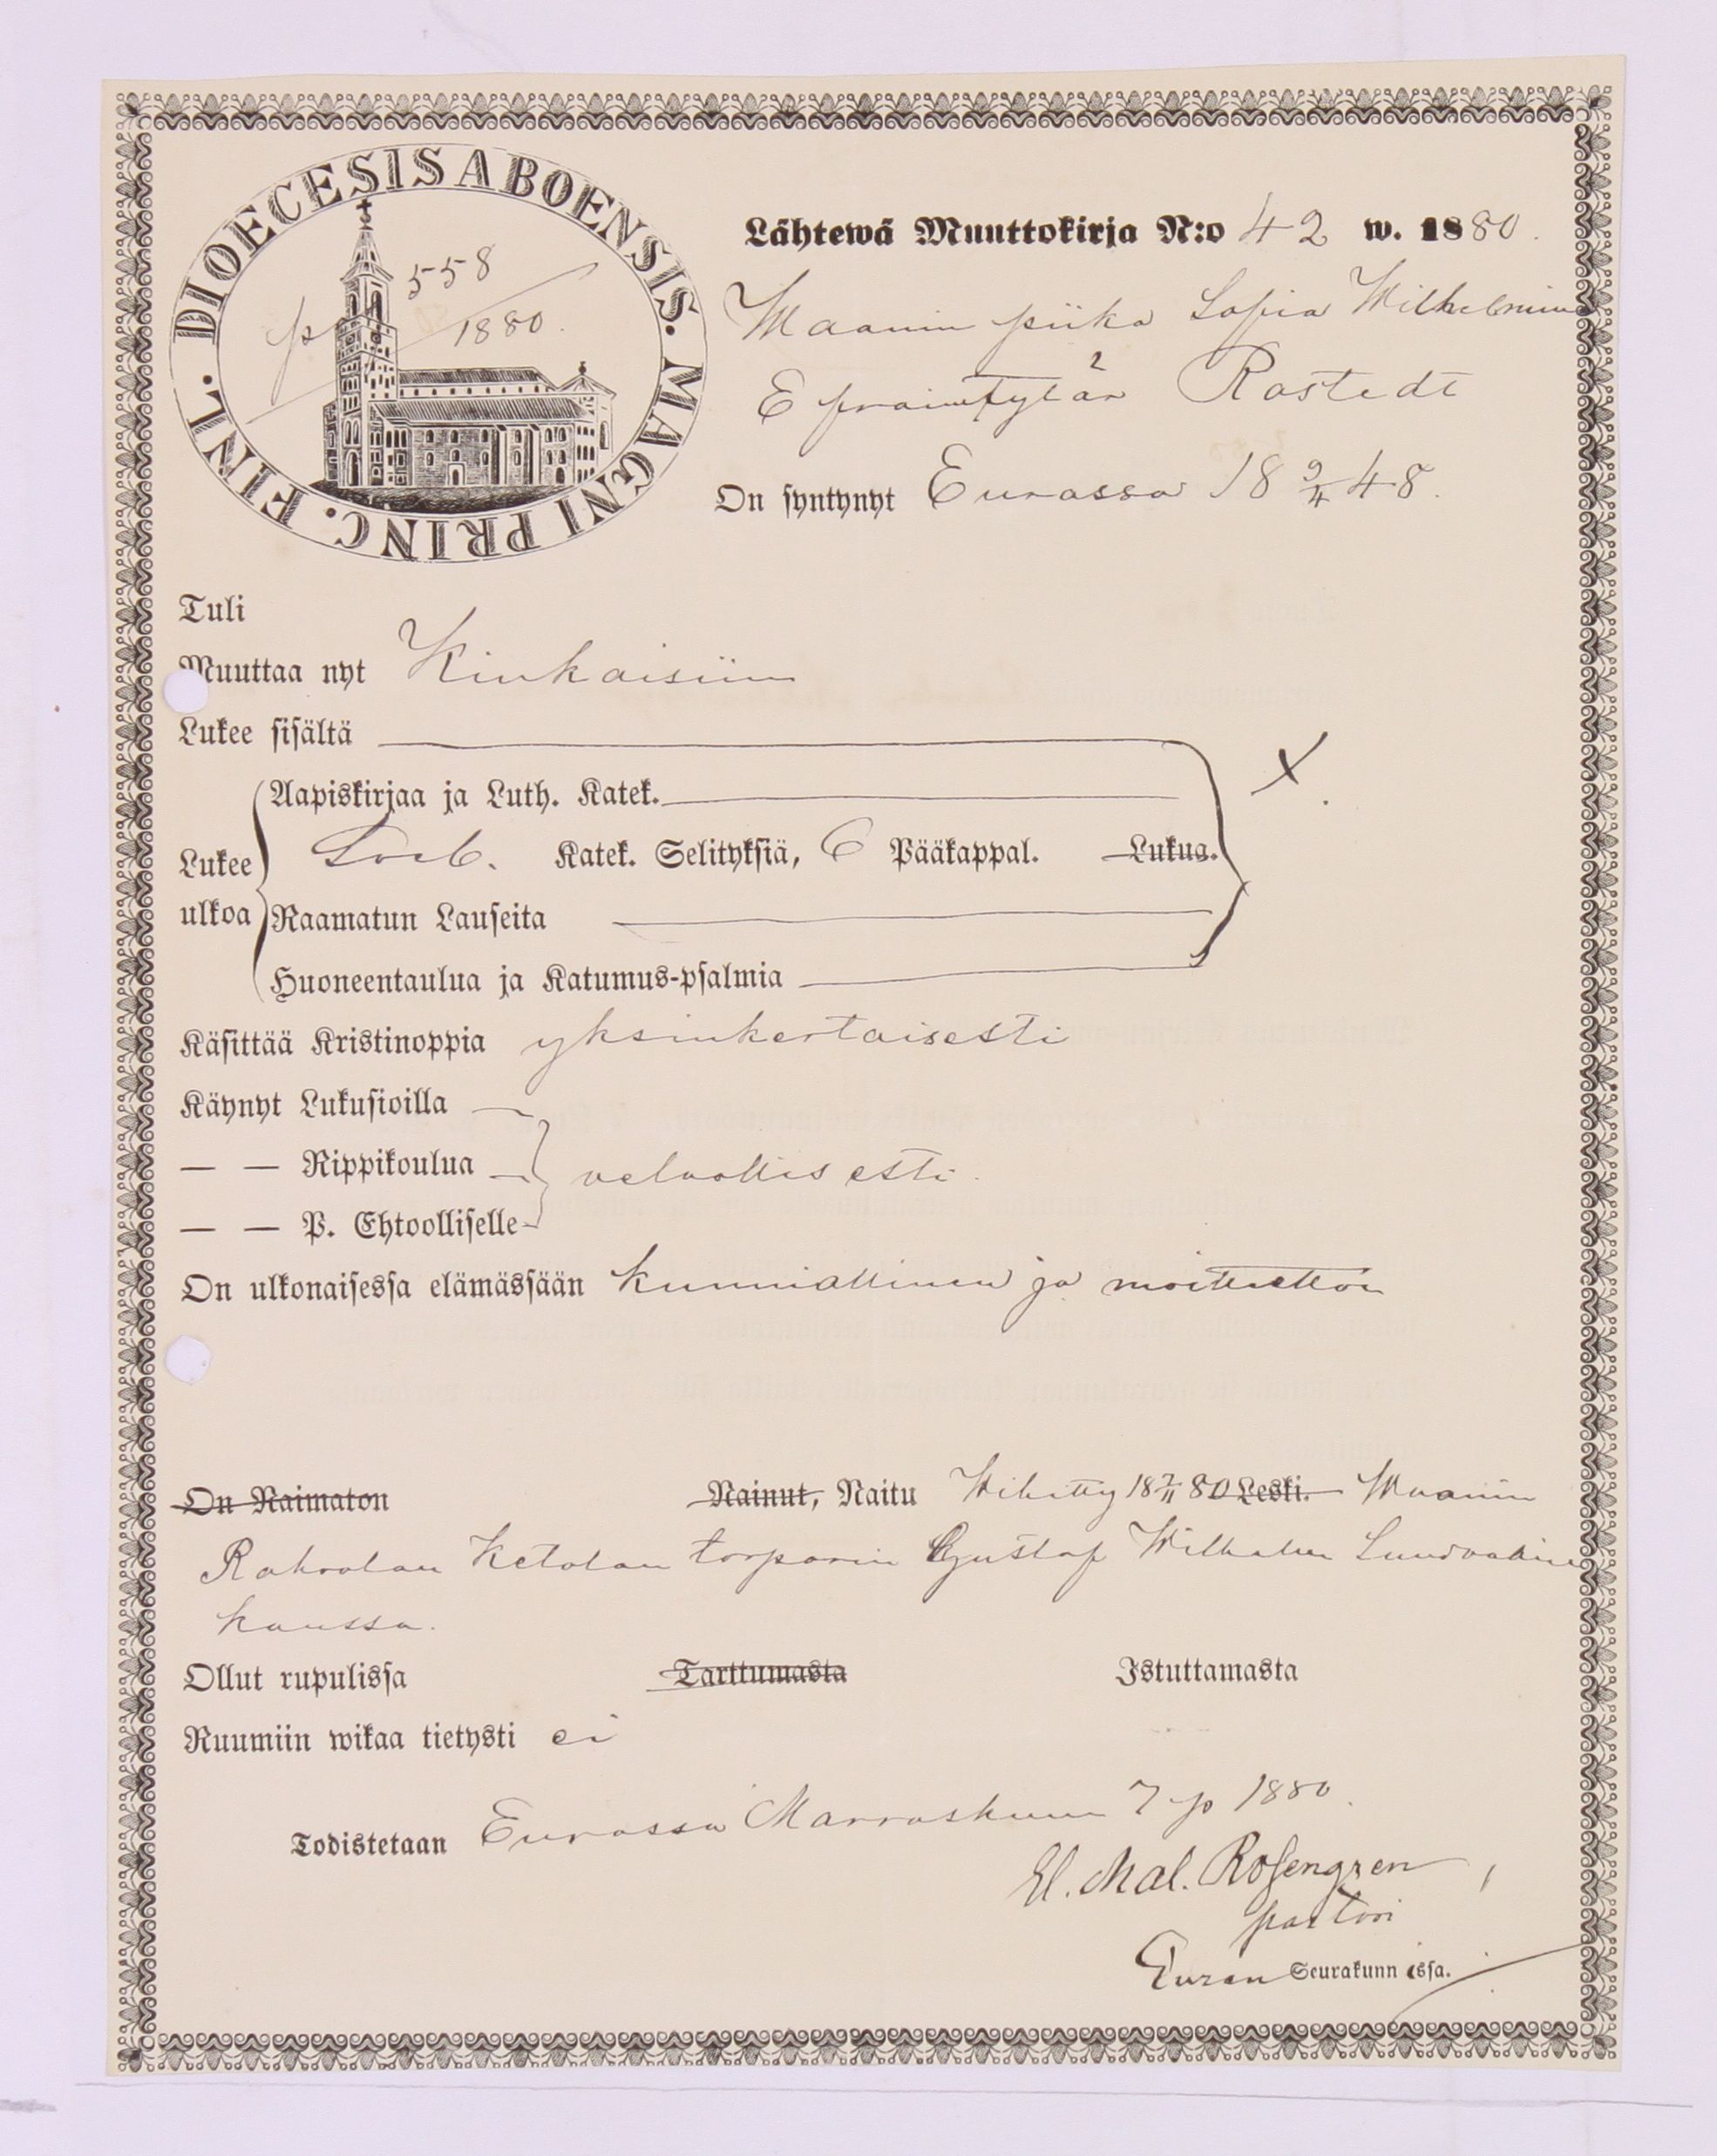 DIOECESIS ABOENSIS. MAGNI PRINC. FINL.
p 558
1880.
Lähtewä Muuttokirja N:o 42 w. 1880.
Maanin piika Sofia Wilhelmina
Efraimtytär Rostedt
On syntynyt Eurassa 18 9/4 48.
Tuli
Muuttaa nyt Kiukaisiin
Lukee sisältä
Aapiskirjaa ja Luth. Katek.
Lukee
ulkoa
Katek. Selityksiä, 6 Pääkappal. Lukua.
Raamatun Lauseita
Huoneentaulua ja Katumus-psalmia
x
Käsittää Kristinoppia yksinkertaisesti
Käynyt Lukusioilla
— — Rippikoulua velvollisesti.
— — P. Ehtoolliselle
On ulkonaisessa elämässään kunniallinen ja moitteetton
On Naimaton Nainut, Naitu Wihitty 18 7/11 80 Leski. Maanin
Ketolan torparin Gustaf Wilhelm
kanssa.
Ollut rupulissa Tarttumasta Istuttamasta
Ruumiin wikaa tietysti ei
Todistetaan Eurassa Marraskuun 7 p 1880.
El. Mal. Rosengren
pastori
Euran Seurakunnissa.